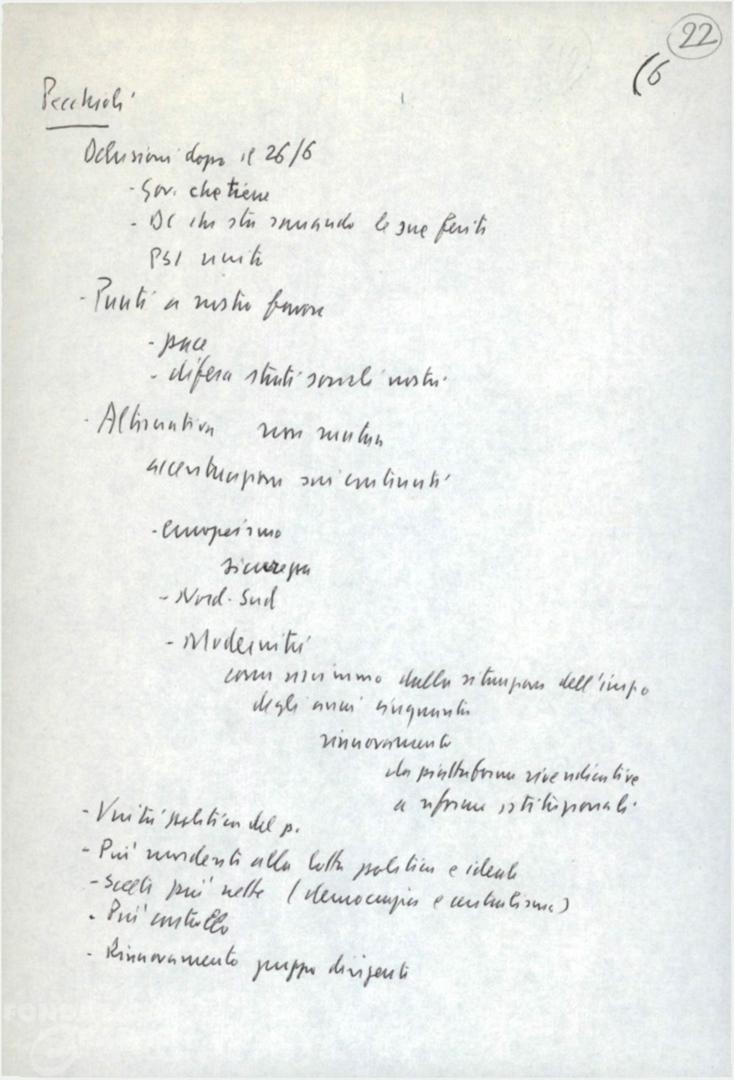 22
(6
Pecchioli
Delusioni dopo il 26/6
- Gov. che tiene
- DC che sta sanando le sue ferite
PSI unito
- Punti a nostro favore
- pace
- difesa strati sociali nostri
- Alternativa non matura
accentuazione sui contenuti
- europeismo
sicurezza
- Nord-Sud
- Modernità
come uscimmo dalla situazione dell'inizio
degli anni cinquanta
rinnovamento
da piattaforme rivendicative
a riforme istituzionali
- Unità politica del p.
- Più mordente alla lotta politica e ideale
- scelte più nette (democrazia e centralismo)
- Più controllo
- Rinnovamento gruppo dirigente